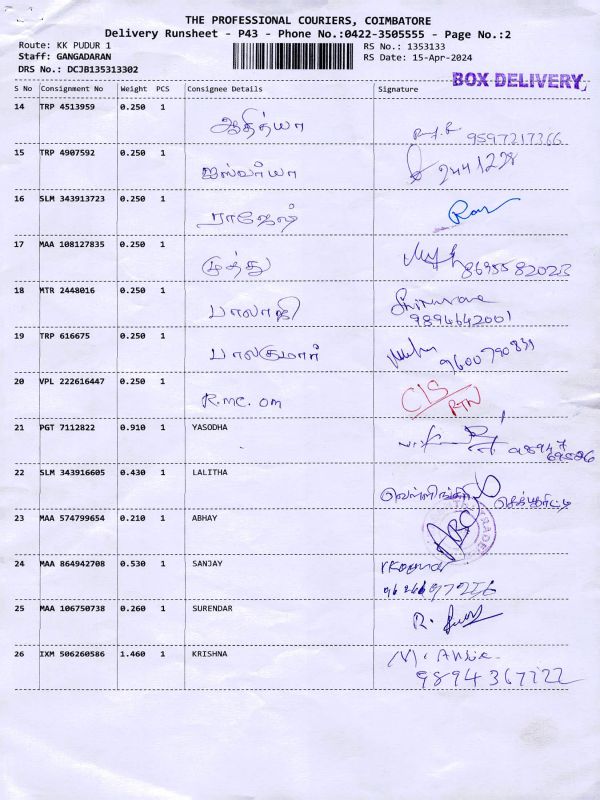 THE PROFESSIONAL COURIERS, COIMBATORE
Delivery Runsheet - P43 - Phone No.:0422-3505555 - Page No.:2
Route: KK PUDUR 1 RS No.: 1353133
Staff: GANGADARAN RS Date: 15-Apr-2024
DRS No.: DCJB135313302
BOX DELIVERY
S No Consignment No Weight PCS Consignee Details Signature
14 TRP 4513959 0.250 1
ஆதித்யா 9597217366
15 TRP 4907592 0.250 1
ஐஸ்வர்யா 2441228
16 SLM 343913723 0.250 1
ராஜேஷ்
17 MAA 108127835 0.250 1
முத்து 8695582023
18 MTR 2448016 0.250 1
பாலாஜி
9894642001
19 TRP 616675 0.250 1
பாலகுமார் 9600790831
20 VPL 222616447 0.250 1
R.mc. om CIS
RTN
21 PGT 7112822 0.910 1 YASODHA
22 SLM 343916605 0.430 1 LALITHA
23 MAA 574799654 0.210 1 ABHAY
24 MAA 864942708 0.530 1 SANJAY
25 MAA 106750738 0.260 1 SURENDAR
R.
26 IXM 506260586 1.460 1 KRISHNA
9894367722